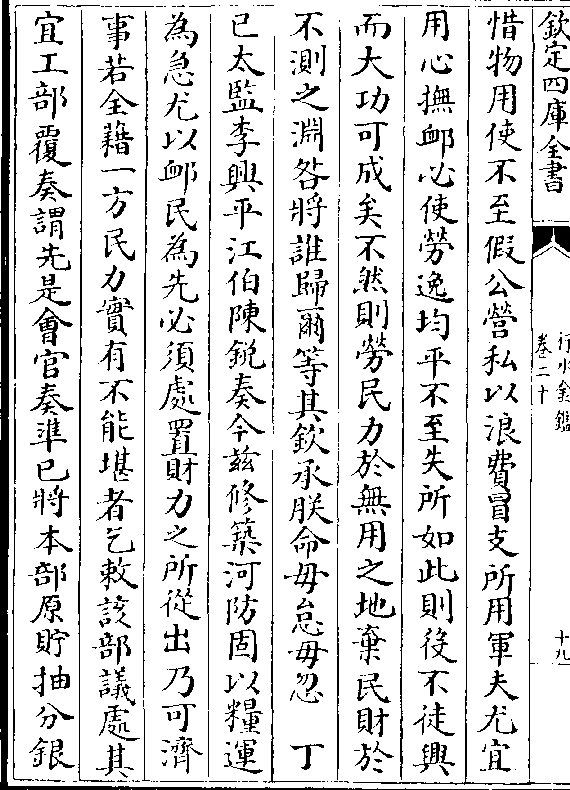 欽定四庫全書
行水金鑑
卷二十
十九
惜物用使不至假公營私以浪費冒支所用軍夫尤宜
用心撫䘏必使勞逸均平不至失所如此則役不徒興
而大功可成矣不然則勞民力於無用之地棄民財於
不測之淵咎將誰歸爾等其欽承朕命毋怠毋忽　丁
已太監李興平江伯陳銳奏今茲修築河防固以糧運
為急尤以䘏民為先必須處置財力之所從出乃可濟
事若全藉一方民力實有不能堪者乞敕該部議處其
宜工部覆奏謂先是會官奏準已將本部原貯抽分銀